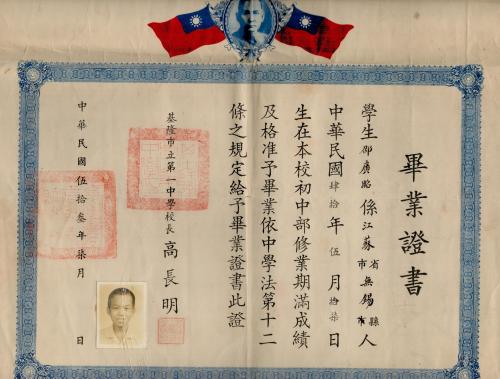 畢業證書
學生邵廣係江蘇省市無錫縣市人
中華民國肆拾年伍月拾柒日
生在本校初中部修業期滿成績
及格准予畢業依中學法第十二
條之規定給予畢業證書此證
基隆市立第一中學校長 高長明
中華民國伍拾叁年柒月 日